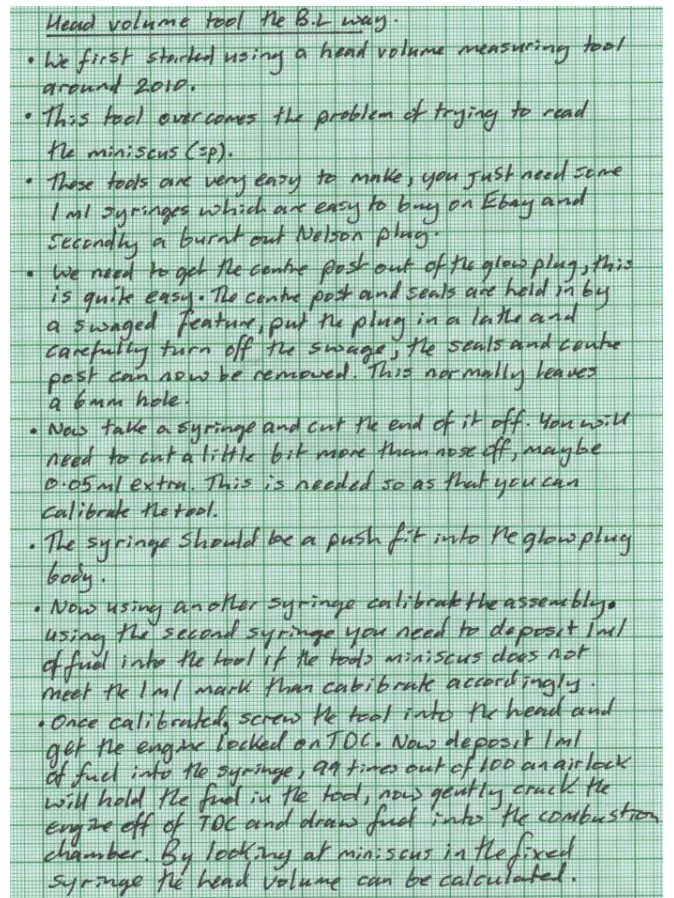 Head volume tool the B.L way.
• We first started using a head volume measuring tool
around 2010.
• This tool overcomes the problem of trying to read
the miniscus (sp).
• These tools are very easy to make, you just need some
1ml syringes which are easy to buy on Ebay and
secondly a burnt out Nelson plug.
• We need to get the centre post out of the glow plug, this
is quite easy. The centre post and seals are held in by
a swaged feature, put the plug in a lathe and
carefully turn off the swage, the seals and centre
post can now be removed. This normally leaves
a 6mm hole.
• Now take a syringe and cut the end of it off. You will
need to cut a little bit more than nose off, maybe
0.05ml extra. This is needed so as that you can
calibrate the tool.
• The syringe should be a push fit into the glow plug
body.
• Now using another syringe calibrate the assembly.
using the second syringe you need to deposit 1ml
of fuel into the tool if the tools miniscus does not
meet the 1ml mark than cabibrate accordingly.
• Once calibrated, screw the tool into the head and
get the engine locked on TDC. Now deposit 1ml
of fuel into the syringe, 99 times out of 100 an air lock
will hold the fuel in the tool, now gently crack the
engine off of TDC and draw fuel into the combustion
chamber. By looking at miniscus in the fixed
syringe the head volume can be calculated.